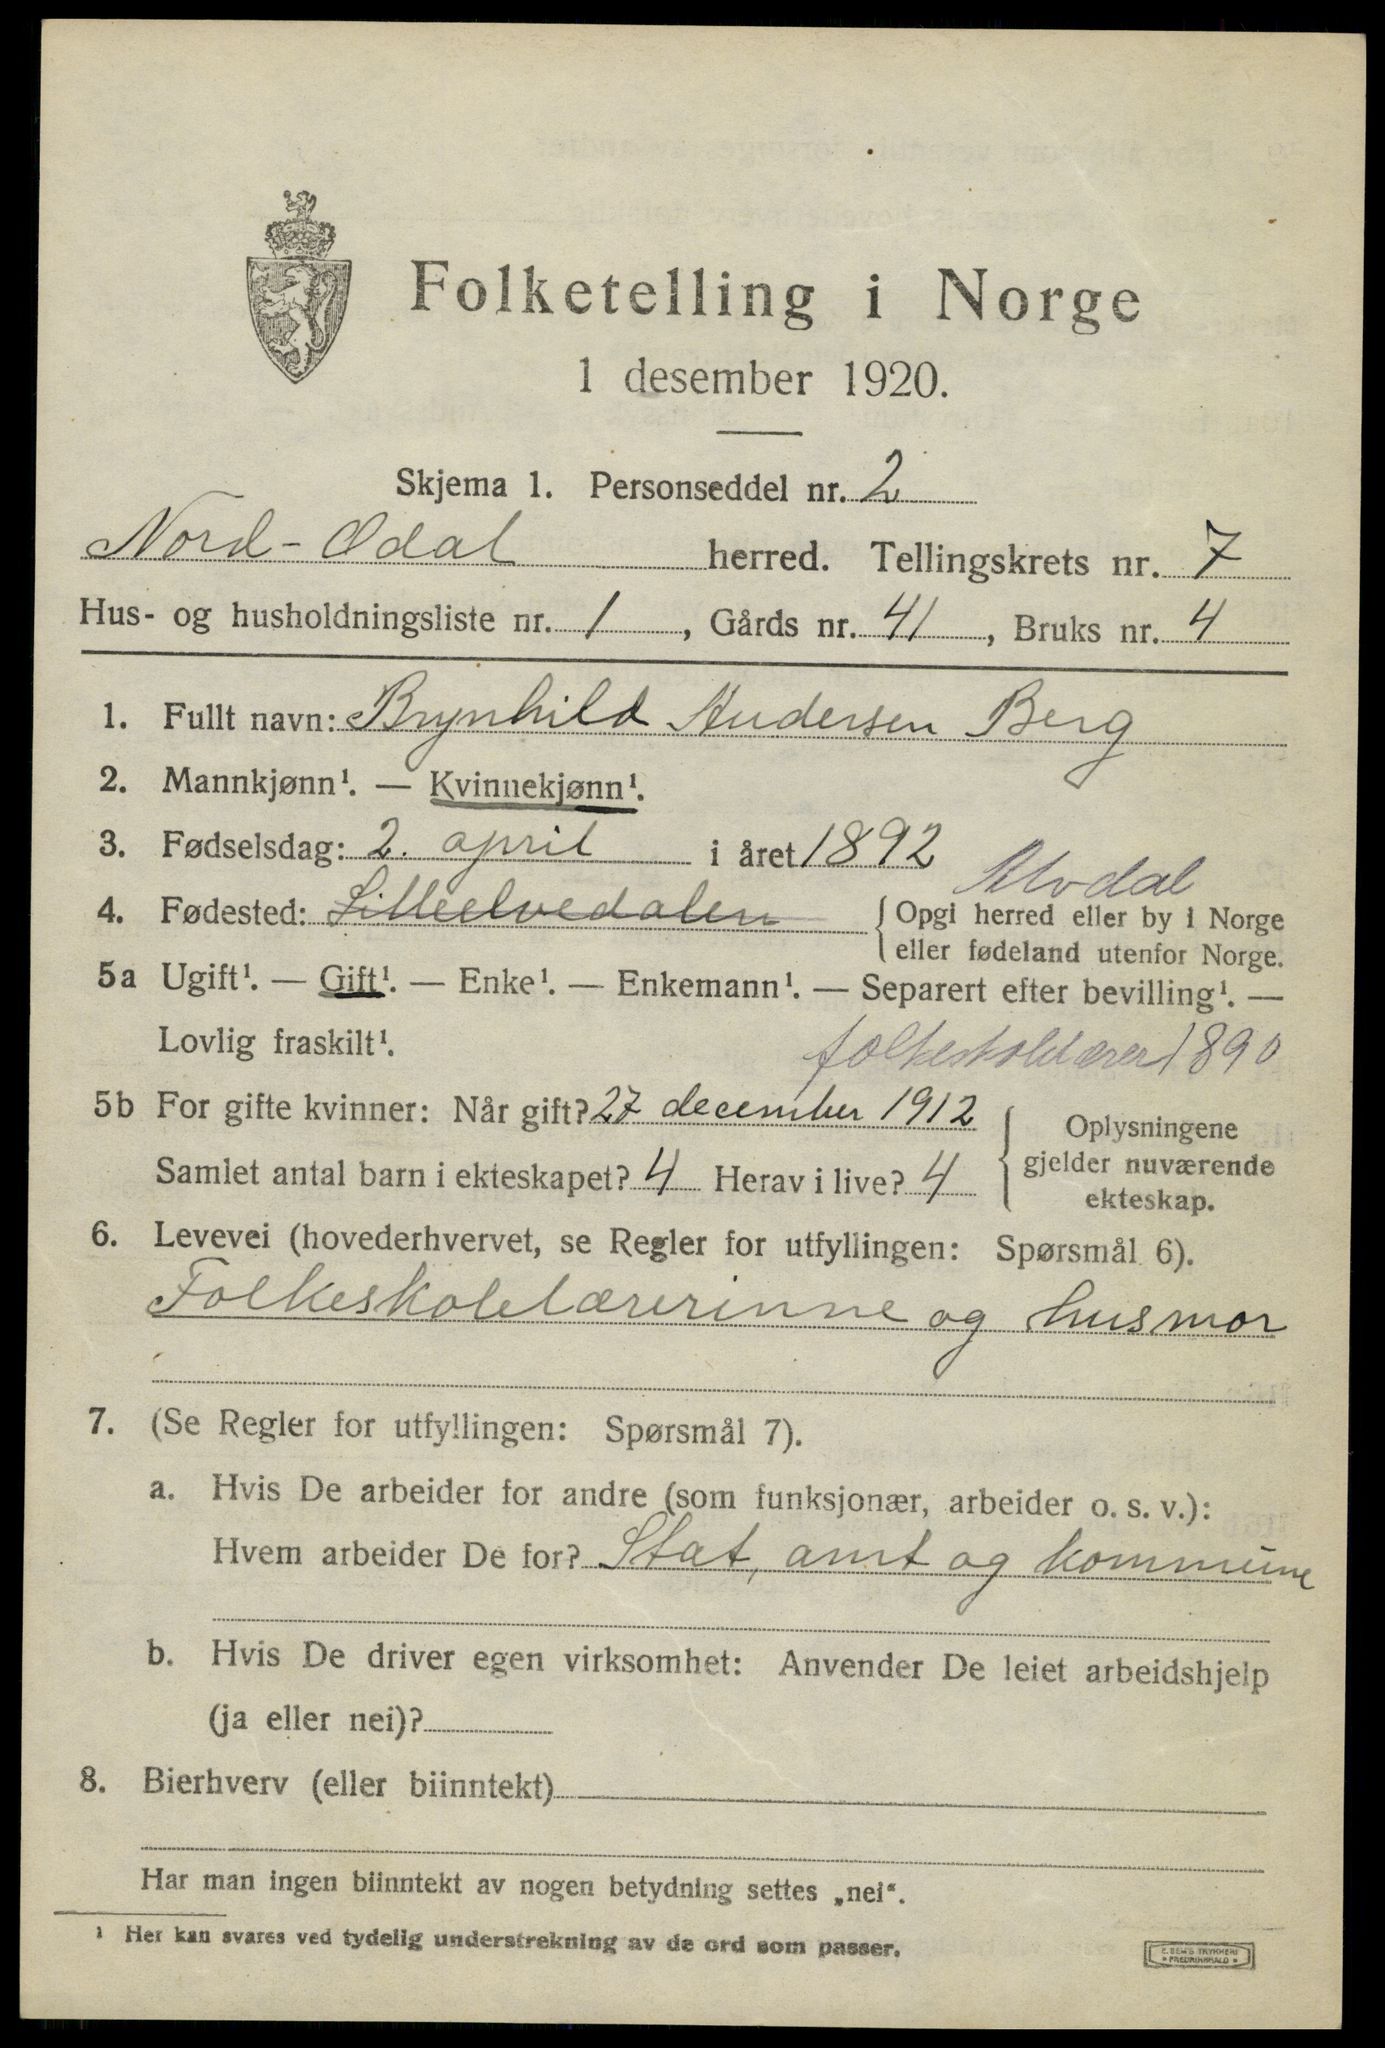 Folketelling i Norge
1 desember 1920.
Skjema 1. Personseddel nr. 2
Nord-Odal herred. Tellingskrets nr. 7
Hus- og husholdningsliste nr. 1, Gårds nr. 41, Bruks nr. 4
1. Fullt navn: Brynhild Andersen Berg
2. Mannkjønn¹. — Kvinnekjønn¹.
3. Fødselsdag: 2. april i året 1892
Alvdal
4. Fødested: Lilleelvedalen { Opgi herred eller by i Norge
eller fødeland utenfor Norge.
5a Ugift¹. — Gift¹. — Enke¹. — Enkemann¹. — Separert efter bevilling¹. —
Lovlig fraskilt¹.
folkeskolelærer 1890
5b For gifte kvinner: Når gift? 27 december 1912
Samlet antal barn i ekteskapet? 4 Herav i live? 4
{ Oplysningene
gjelder nuværende
ekteskap.
6. Levevei (hovederhvervet, se Regler for utfyllingen: Spørsmål 6).
Folkeskolelærerinne og husmor
7. (Se Regler for utfyllingen: Spørsmål 7).
a. Hvis De arbeider for andre (som funksjonær, arbeider o. s. v.):
Hvem arbeider De for? Stat, amt og kommune
b. Hvis De driver egen virksomhet: Anvender De leiet arbeidshjelp
(ja eller nei)?
8. Bierhverv (eller biinntekt)
Har man ingen biinntekt av nogen betydning settes „nei“.
¹ Her kan svares ved tydelig understrekning av de ord som passer.
E. SEM'S TRYKKERI
• FREDRIKSHALD •